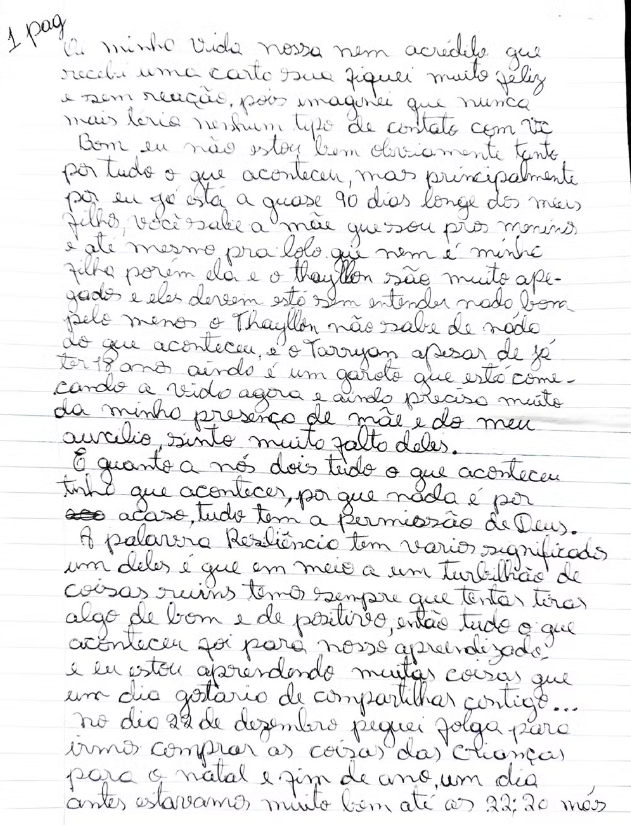 1 pag
Oi minha vida nossa nem acredito que
recebi uma carta sua fiquei muito feliz
e sem reação, pois imaginei que nunca
mais teria nenhum tipo de contato com vc
Bom eu não estou bem obviamente tanto
por tudo o que aconteceu, mas principalmente
por eu já está a quase 90 dias longe dos meus
filho, você sabe a mãe que sou pros meninos
e até mesmo pra lolo que nem é minha
filha porém ela e o Thayllon são muito ape-
gados e eles devem está sem entender nada bom
pelo menos o Thayllon não sabe de nada
do que aconteceu, e o Tarryan apesar de já
ter 18 anos ainda é um garoto que está come-
cando a vida agora e ainda precisa muito
da minha presença de mãe e do meu
auxilio, sinto muito falta deles.
E quanto a nós dois tudo o que aconteceu
tinha que acontecer, por que nada é por
acaso, tudo tem a permissão de Deus.
A palavra Resiliência tem varios significados
um deles é que em meio a um turbilhão de
coisas ruins temos sempre que tentar tirar
algo de bom e de positivo, então tudo o que
aconteceu foi para nosso aprendizado
e eu estou aprendendo muitas coisas que
um dia gostaria de compartilhar contigo...
No dia 22 de dezembro peguei folga para
irmos comprar as coisas das crianças
para o natal e fim de ano, um dia
antes estavamos muito bem até as 22:20 más